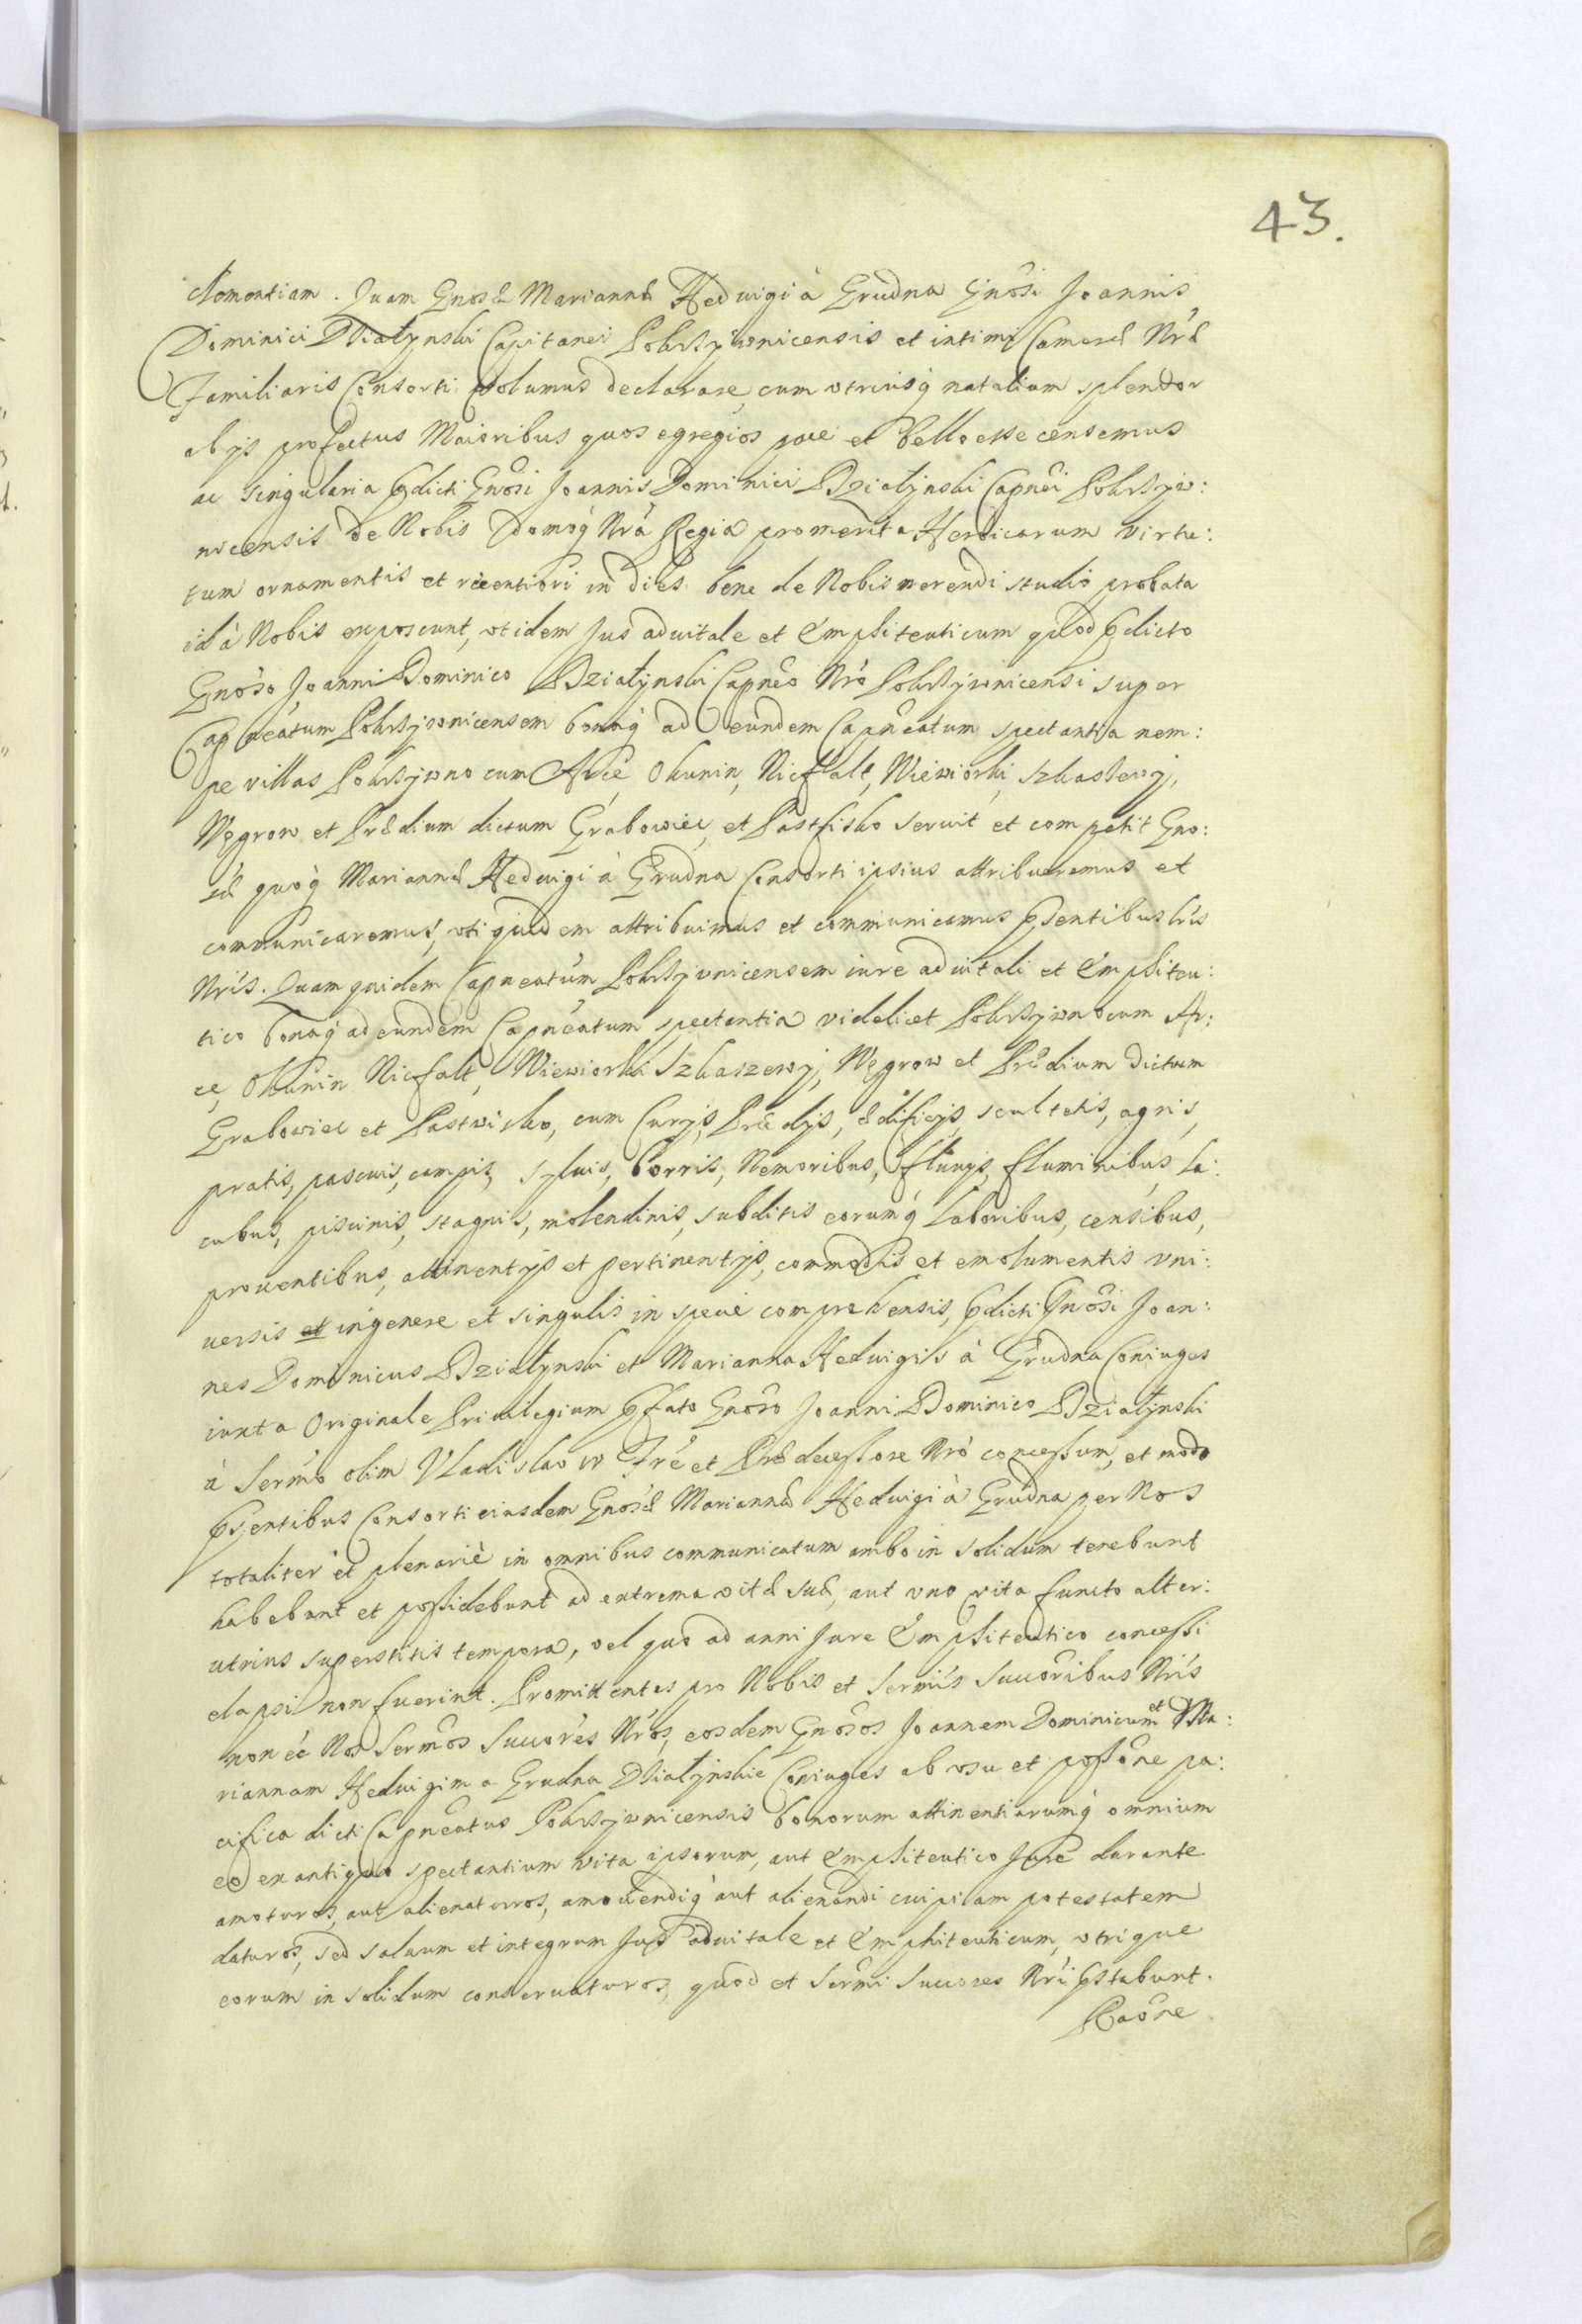 43.
clementiam. Quam Gnosæ Mariannæ Hedvigi à Grudna Gnôsi Joannis
Dominici Działynski Capitanei Pokrzywnicensis et intimi Cameræ Nræ
Familiaris Consorti volumus declarare, cum utriusq́ natalium splendor
ab ijs profectus Maioribus quos egregios pace et bello esse censemus
ac singularia pdicti Gnôsi Joannis Dominici Działynski Capnei Pokrzyw:
nicensis de Nobis Domoq́ Nrâ Regia promerita Heroicarum virtu:
tum ornamentis et recentiori in dies bene de Nobis merendi studio probata
id à Nobis exposcunt, ut idem Jus advitale et Emphiteuticum quod pdicto
Gnôso Joanni Dominico Działynski Capneo Nrô Pokrzywnicensi super
Capneatum Pokrzywnicensem bonaq́ ad eundem Capneatum spectantia nem:
pe villas Pokrzywno cum Arce, Okunin, Nicfałt, Wiewiorki, Szkaszewy,
Węgrow et Prædium dictum Grabowiec, et Pastfisko servit et competit Gno:
sæ quoq́ Mariannæ Hedvigi à Grudna Consorti ipsius attribueremus et
communicaremus, uti quidem attribuimus et communicamus psentibus lris
Nris. Quam quidem Capneatum Pokrzywnicensem iure advitali et Emphiteu:
tico bonaq́ ad eundem Capneatum spectantia videlicet Pokrzywno cum Ar:
ce, Okunin Nicfałt, Wiewiorki Szkaszewy, Węgrow et Prædium dictum
Grabowiec et Pastwisko, cum Curijs, Prædijs, ædificijs, scultetis, agris,
pratis, pascuis, campis, sylvis, borris, Nemoribus, fluvijs, fluminibus, la:
cubus, piscinis, stagnis, molendinis, subditis eorumq́ laboribus, censibus,
proventibus, attinentijs et pertinentijs, commodis et emolumentis uni:
versis et in genere et singulis in specie comprehensis, pdicti Gnôsi Joan:
nes Dominicus Działynski et Marianna Hedvigis à Grudna Coniuges
iuxta Originale Privilegium pfato Gnoso Joanni Dominico Działynski
à Sermo olim Vladislao IV Fre et Prædecessore Nrô concessum, et modo
psentibus Consorti eiusdem Gnosæ Mariannæ Hedvigi à Grudna per Nos
totaliter et plenariè in omnibus communicatum ambo in solidum tenebunt
habebunt et possidebunt ad extrema vitæ suæ, aut uno vita functo alter:
utrius superstitis tempora, vel quo ad anni Jure Emphiteutico concessi
elapsi non fuerint. Promittentes pro Nobis et Sermis Succôribus Nris
non ee Nos Sermos Succores Nros, eosdem Gnosos Joannem Dominicum et Ma:
riannam Hedvigim a Grudna Działynskie Coniuges ab usu et possône pa:
cifica dicti Capneatus Pokrzywnicensis bonorum attinentiarumq́ omnium
eo ex antiquo spectantium vita ipsorum, aut Emphiteutico Jure durante
amoturos, aut alienaturos, amovendiq́ aut alienandi cuipiam potestatem
daturos, sed salvum et integrum Jus advitale et Emphiteuticum, utrique
eorum in solidum conservaturos, quod et Sermi Succores Nri pstabunt.
Raône